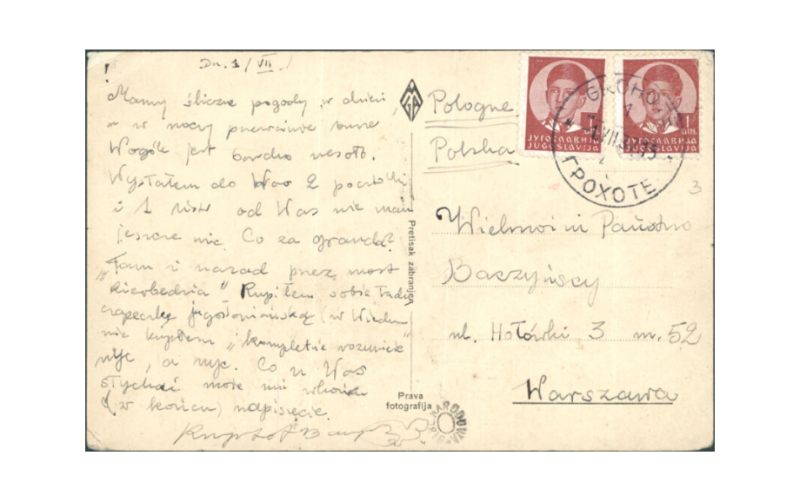 Dn. 1/VII.
Mamy śliczne pogody w dzień
a w nocy przeważnie
Wogóle jest bardzo wesoło.
Wysłałem do Was 2 pocztówki
i 1 list od Was nie mam
jeszcze nic. Co za granda?
"Tam i nazad przez most
Kupiłem sobie ładną
czapeczkę jugosłowiańską (w Wiedniu
nie kupiłem "kompletnie
nyc, a nyc. Co u Was
słychać może mi
(w końcu) napiszecie.
Krzysztof
MGA
Pretisak zabranjen
Prava
fotografija
NARODOWA
Pologne
Polska
1
ЈУГОСЛАВИЈА
JUGOSLAVIJA
1
din.
ЈУГОСЛАВИЈА
JUGOSLAVIJA
GROHOTE
ГРОХОТЕ
3
Wielmożni Państwo
Baczyńscy
ul. Hołówki 3 m. 52
Warszawa